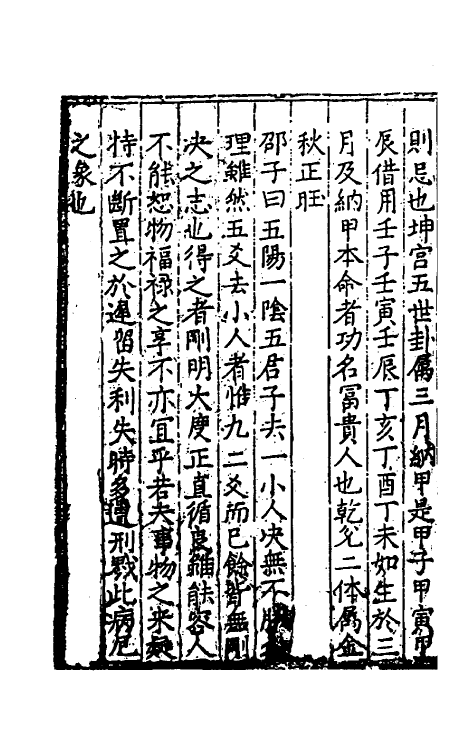 則忌也坤宮五世卦屬三月納甲是甲子甲寅甲
辰借用壬子壬寅壬辰丁亥丁酉丁未如生於三
月及納甲本命者功名富貴人也乾兌二体屬金
秋正旺
邵子曰五陽一陰五君子去一小人決無不勝之
理雖然五爻去小人者惟九二爻而已餘皆無剛
决之志也得之者剛明大度正直循良雖能容人
不能恕物福禄之享不亦宜乎若夫事物之來疑
特不斷置之於遲留失利失時多遭刑戮此病厄
之象也